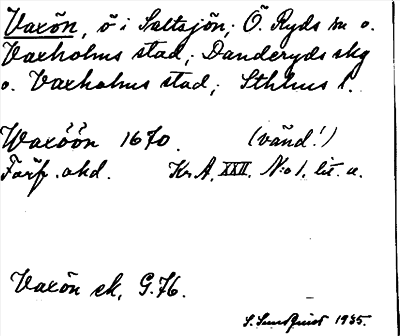 Vaxön, ö i Saltsjön; Ö. Ryds sn o.
Vaxholms stad; Danderyds skg
o. Vaxholms stad; Sthlms l.
Waxöön 1670. (vänd!)
Förf. okd. Kr.A. XXII. N:o 1. lit. a.
Vaxön ek. G.76.
S. Sundquist 1935.